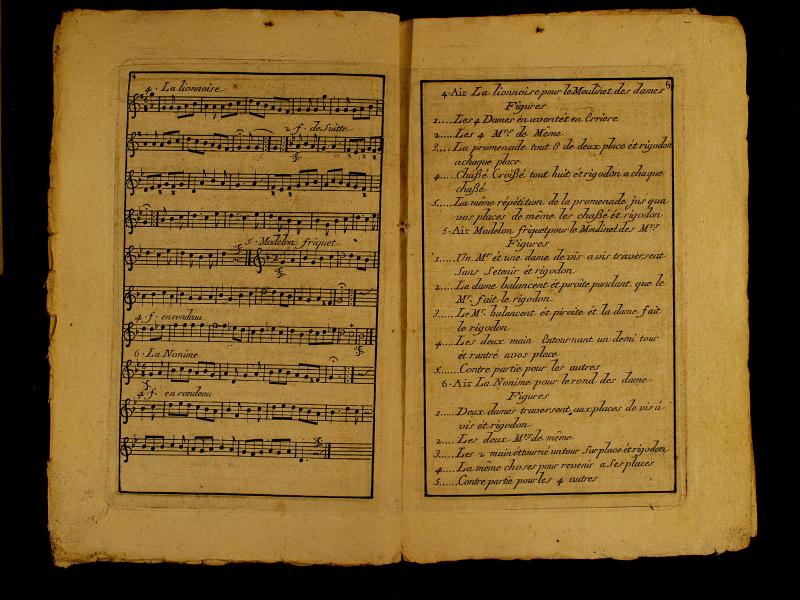 4
4. La lionnoise
2 f. de Suitte
5. Madelon friquet
4. f. en rondeau
6. La Nonime
4. f. en rondeau
5
4. Air La lionnoise pour le Moulinet des dames
Figures
1.....Les 4 Dames en avant ét en Erriere
2.....Les 4 Mrs. de Même
3.....La promenade tout 8 de deux place ét rigodon
a chaque place
4.....Chaßé Croißé tout huit ét rigodon a chaque
chaßé
5.....La même répétition de la promenade jus qua
vos places de même les chaßé ét rigodon
5. Air Madelon friquet pour le Moulinet des Mrs
Figures
1.....Un Mr. ét une dame de vis a vis traversent
Sans Se tenir ét rigodon
2.....La dame balancent ét piroite pandant que le
Mr. fait le rigodon
3.....Le Mr. balancent ét piroite ét la dame fait
le rigodon
4.....Les deux main Entournant un demi tour
ét rantré a vos place
5......Contre partie pour les autres
6. Air La Nonime pour le rond des dame
Figures
1.....Deux dames traversent, aux places de vis á
vis ét rigodon
2.....Les deux Mrs de même
3.....Les 2 main ét tourné un tour Sur place ét rigodon
4.....La même choses pour revenir a Ses places
5......Contre partie pour les 4 autres